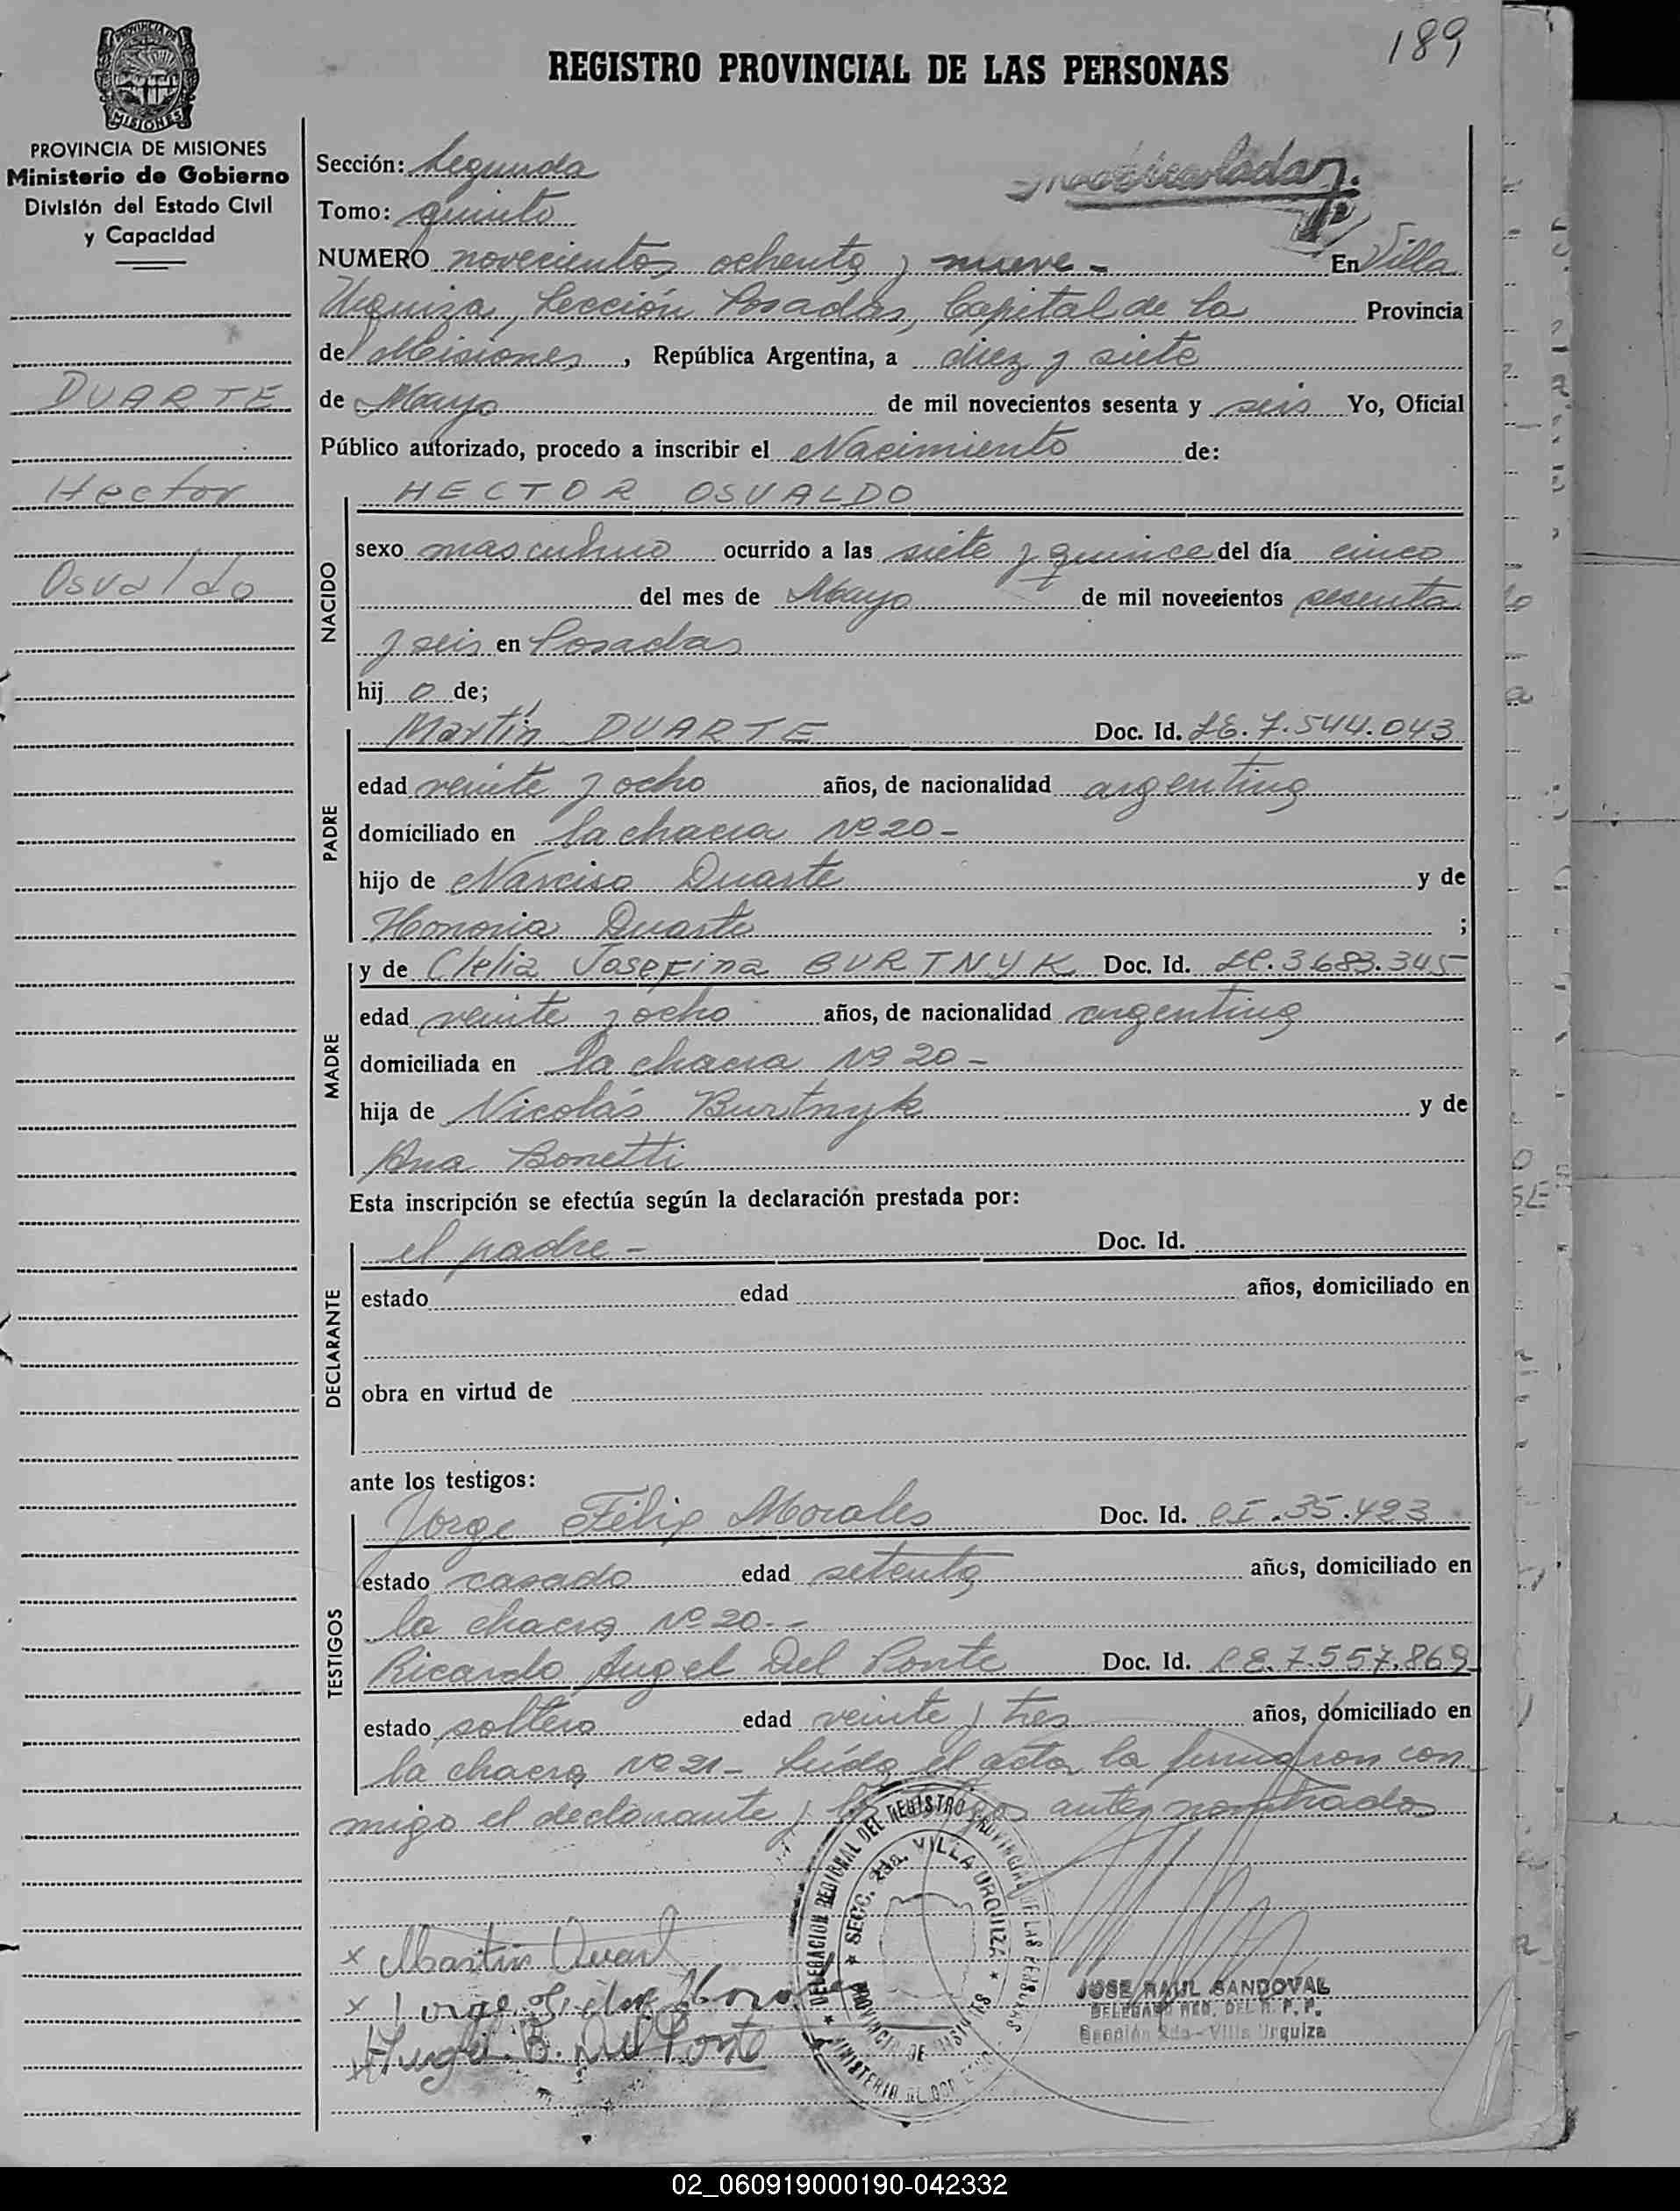 189
REGISTRO PROVINCIAL DE LAS PERSONAS
PROVINCIA DE MISIONES
MISIONES
PROVINCIA DE MISIONES
Ministerio de Gobierno
División del Estado Civil
y Capacidad
DUARTE
Hector
Osvaldo
Sección: Segunda
Tomo: quinto
NUMERO novecientos ochenta y nueve - En Villa
Urquiza, Sección Posadas, Capital de la Provincia
de Misiones, República Argentina, a diez y siete
de Mayo de mil novecientos sesenta y seis Yo, Oficial
Público autorizado, procedo a inscribir el Nacimiento de:
NACIDO
HECTOR OSVALDO
sexo masculino ocurrido a las siete y quince del día cinco
del mes de Mayo de mil novecientos sesenta
y seis en Posadas
hij o de;
PADRE
Martín DUARTE Doc. Id. LE. 7.544.043
edad veinte y ocho años, de nacionalidad argentina
domiciliado en la chacra Nº 20 -
hijo de Narciso Duarte y de
Honoria Duarte ;
MADRE
y de Clelia Josefina BURTNYK Doc. Id. LC. 3.683.345
edad veinte y ocho años, de nacionalidad argentina
domiciliada en la chacra Nº 20 -
hija de Nicolás Burtnyk y de
Ana Bonetti
Esta inscripción se efectúa según la declaración prestada por:
DECLARANTE
el padre - Doc. Id.
estado edad años, domiciliado en
obra en virtud de
ante los testigos:
TESTIGOS
Jorge Félix Morales Doc. Id. CI. 35.423
estado casado edad setenta años, domiciliado en
la chacra Nº 20. -
Ricardo Angel Del Ponte Doc. Id. LE. 7.557.869
estado soltero edad veinte y tres años, domiciliado en
la chacra Nº 21 - Leída el acta la firmaron con
migo el declarante y los testigos antes nombrados
x Martin Duart
x Jorge
x Angel. B. Del Ponte
DELEGACION REGIONAL DEL REGISTRO PROVINCIAL DE LAS PERSONAS
SECC. 2da. VILLA URQUIZA
PROVINCIA DE MISIONES
MINISTERIO DE GOBIERNO
JOSE RAUL SANDOVAL
DELEGADO REG. DEL R. P. P.
Sección 2da - Villa Urquiza
02_060919000190-042332